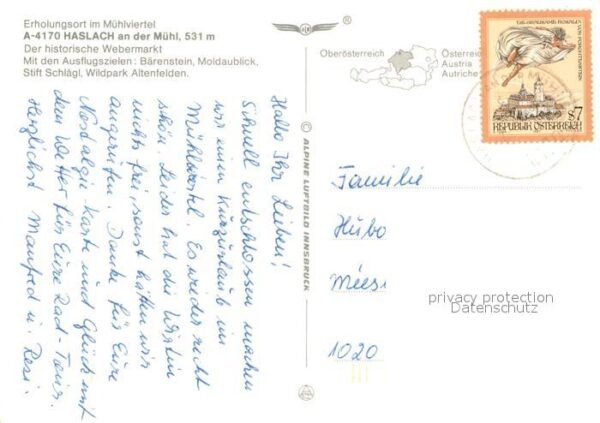 Erholungsort im Mühlviertel
A-4170 HASLACH an der Mühl, 531 m
Der historische Webermarkt
Mit den Ausflugszielen: Bärenstein, Moldaublick,
Stift Schlägl, Wildpark Altenfelden.
Hallo Ihr Lieben!
Schnell entschlossen machen
wir einen Kurzurlaub im
Mühlviertel. Es wieder recht
schön. Leider hat die Wirtin
nichts frei, sonst hätten wir
angerufen. Danke für Eure
Nostalgie-Karte und Glück mit
dem Wetter für Eure Rad-Tour.
Herzlichst Manfred u. Resi.
© ALPINE LUFTBILD INNSBRUCK
Oberösterreich
Österreich
Austria
Autriche
REPUBLIK ÖSTERREICH
S7
Familie
Hubo
1020
privacy protection
Datenschutz